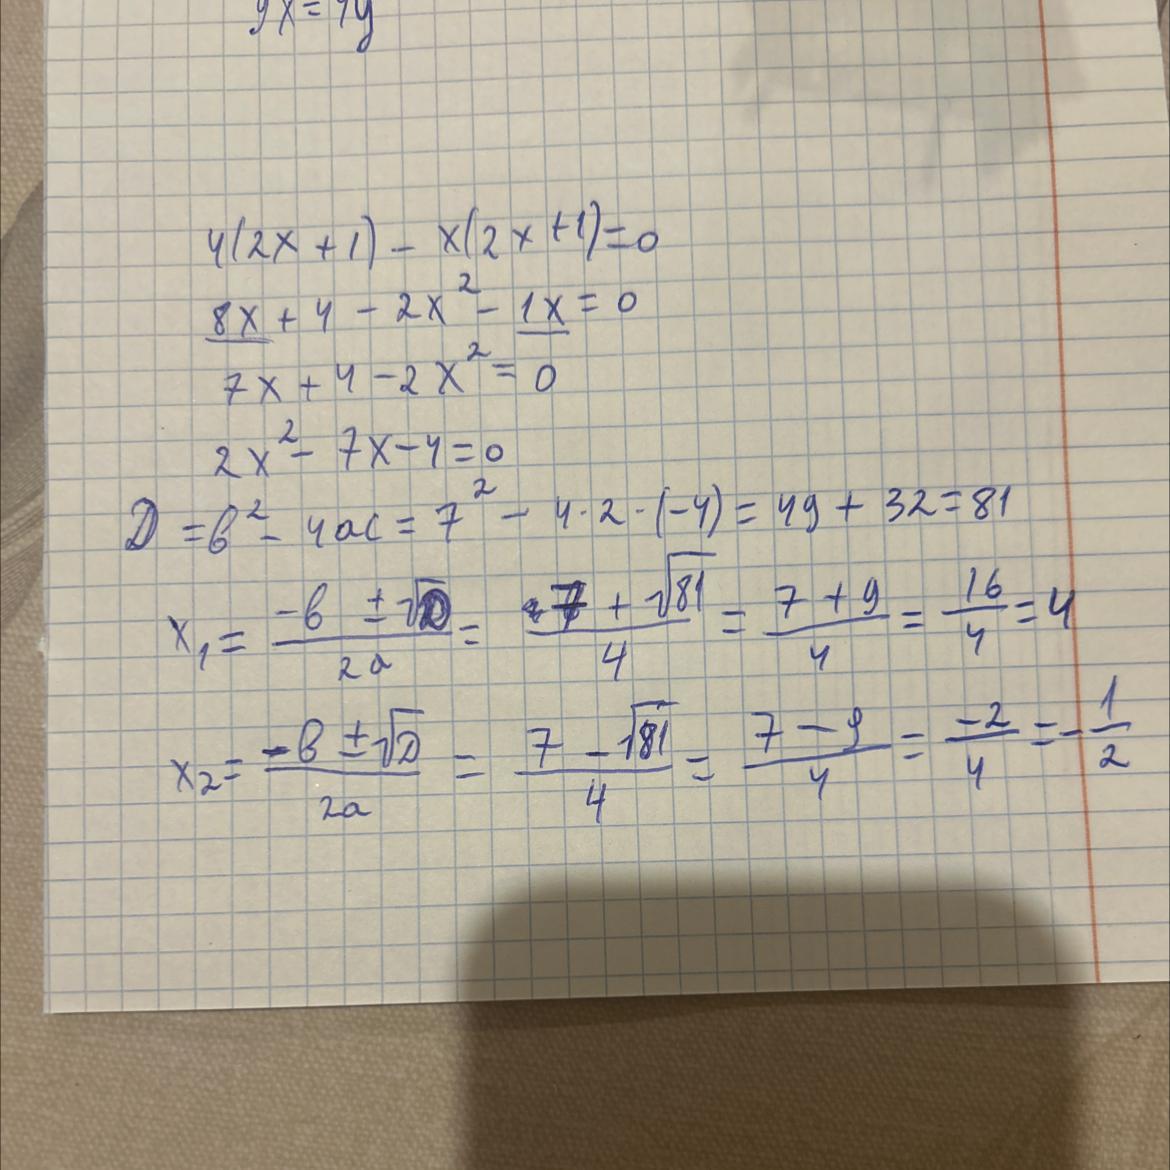 9x = 4y
4(2x + 1) - x(2x + 1) = 0
8x + 4 - 2x² - 1x = 0
7x + 4 - 2x² = 0
2x² - 7x - 4 = 0
D = b² - 4ac = 7² - 4·2·(-4) = 49 + 32 = 81
x₁ = (-b ± √D)/(2a) = (7 + √81)/4 = (7 + 9)/4 = 16/4 = 4
x₂ = (-b ± √D)/(2a) = (7 - √81)/4 = (7 - 9)/4 = -2/4 = -1/2